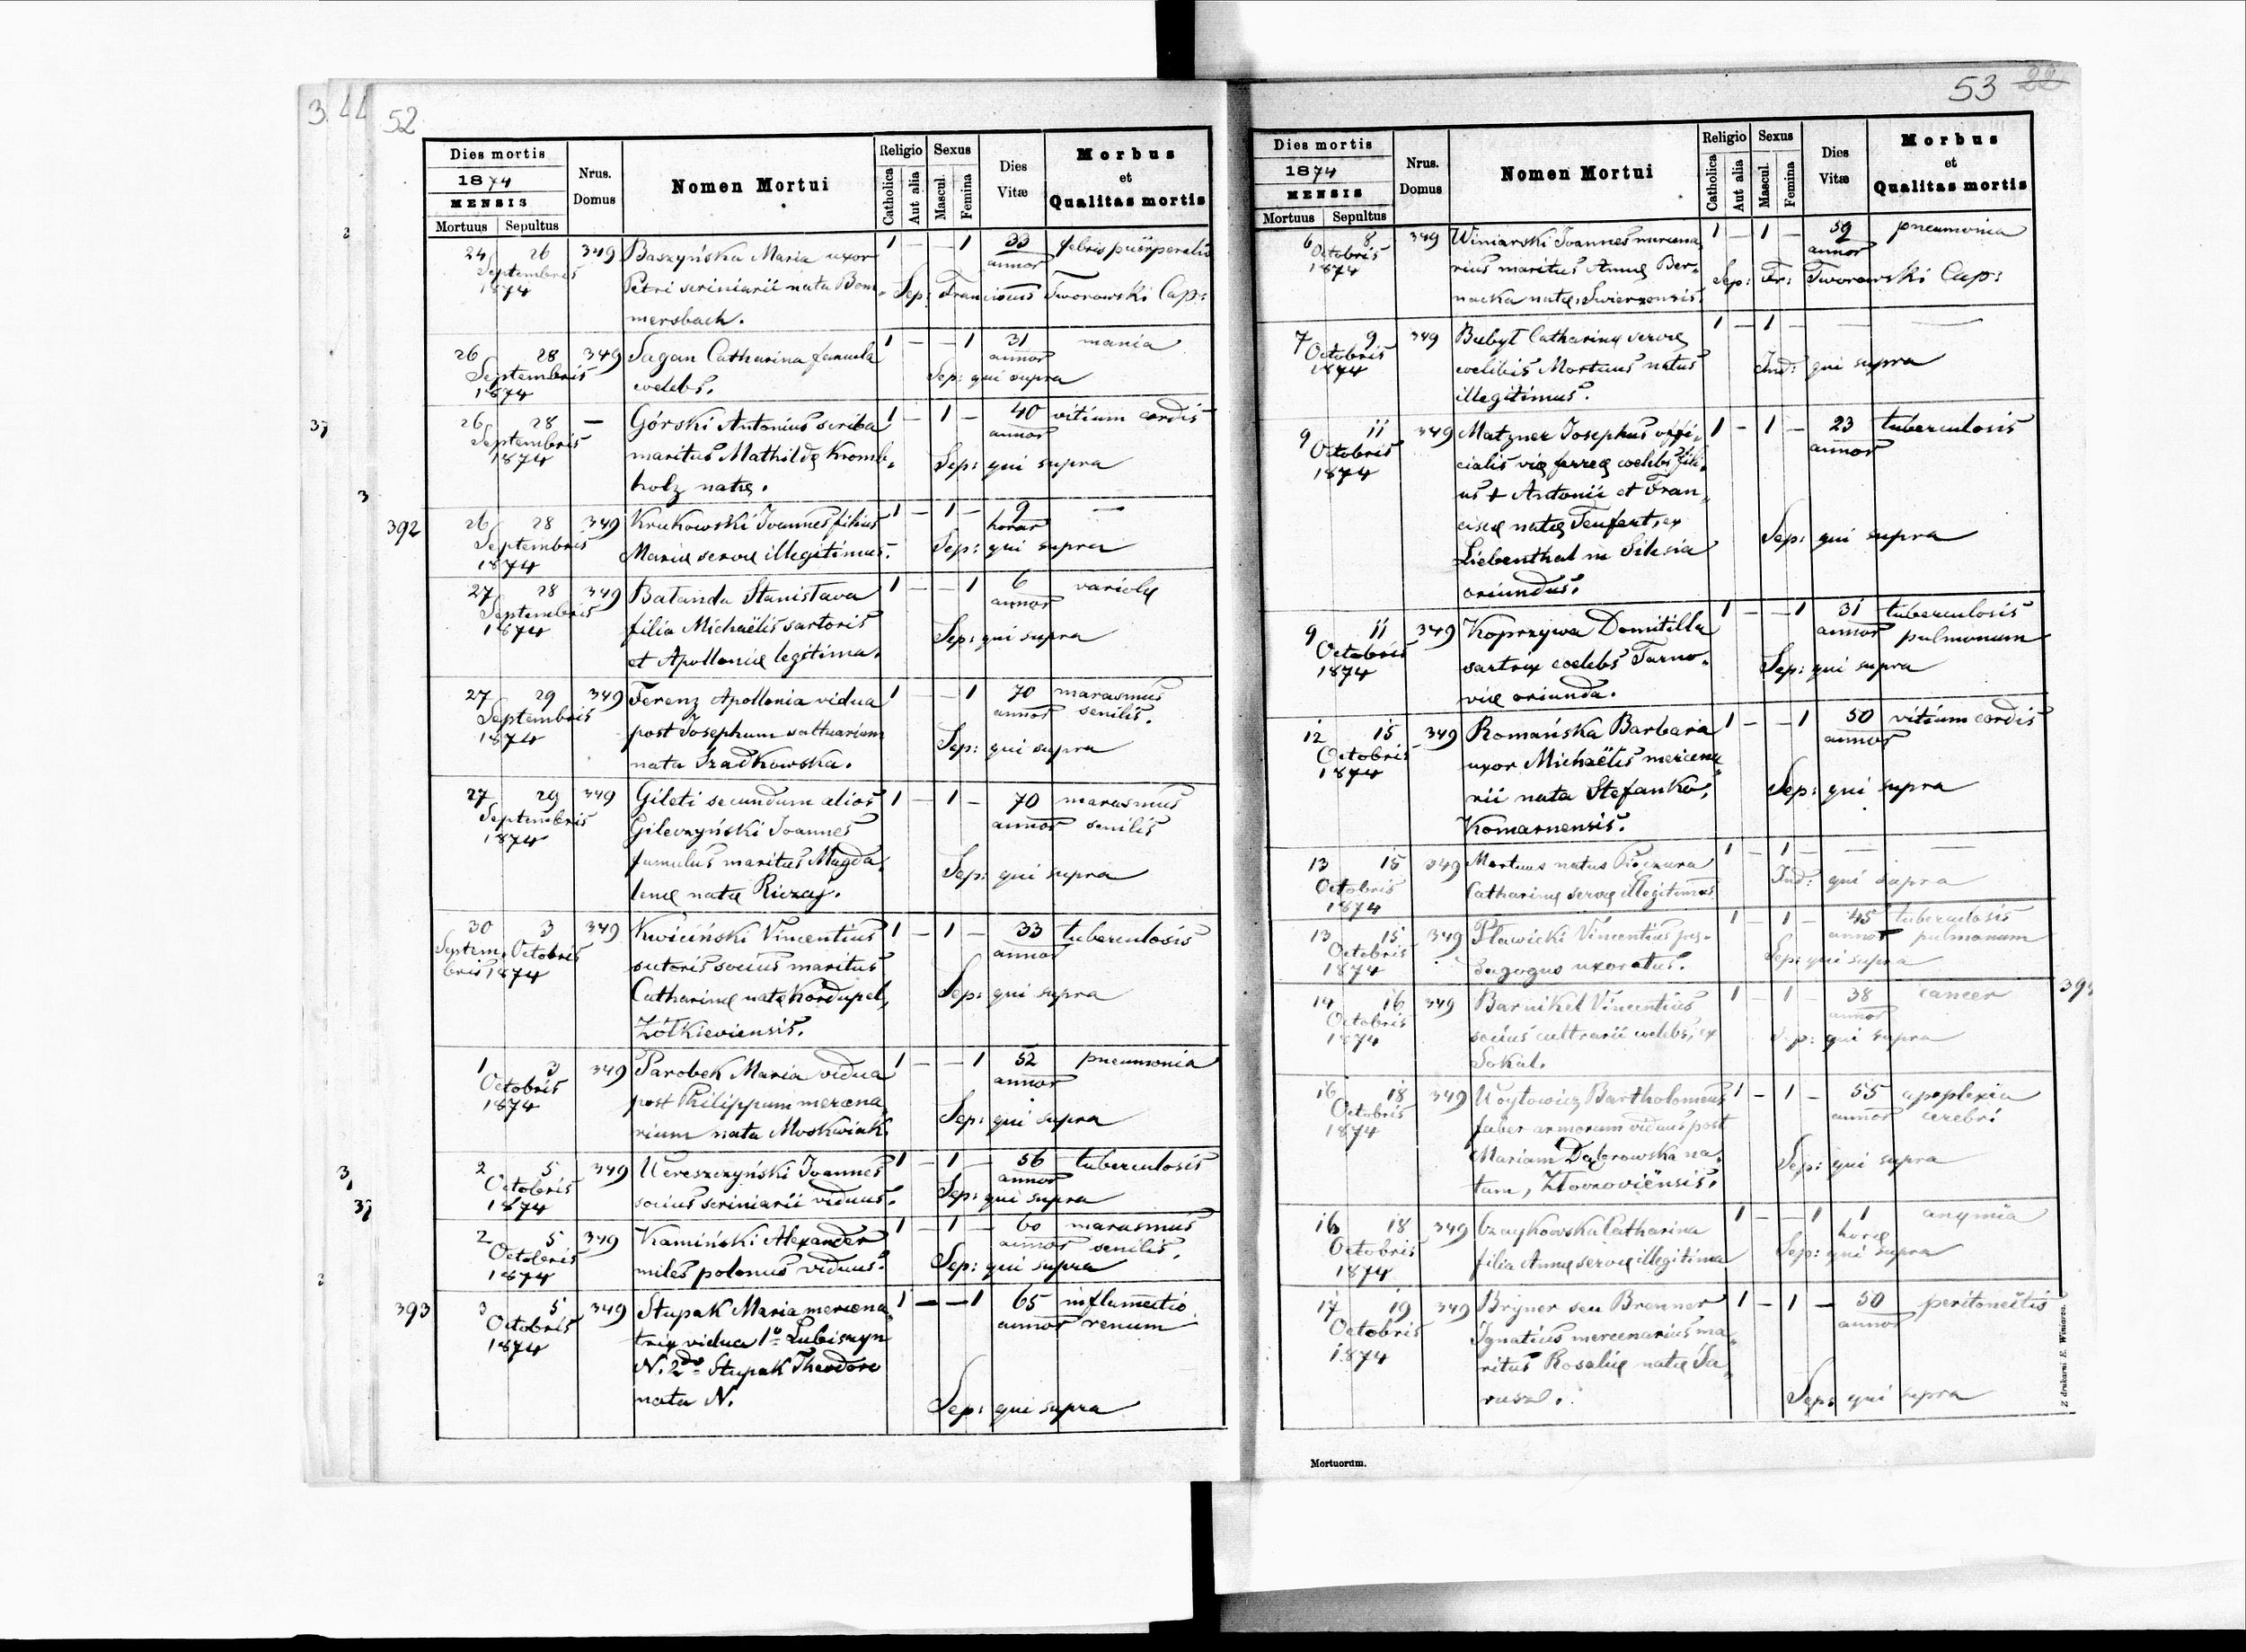 3 44 52
Dies mortis
1874
MENSIS
Mortuus Sepultus
Nrus. Domus
Nomen Mortui
Religio
Catholica Aut alia
Sexus
Mascul. Femina
Dies Vitæ
Morbus et Qualitas mortis
24 26 349 Baszyńska Maria uxor 1 — — 1 33 febris püerperalis
Septembris Petri scriniarii nata Bom- annor
1874 mersbach. Sep: Franciscus Tworowski Cap:
26 28 349 Sagan Catharina famula 1 — — 1 31 mania
Septembris coelebs. annor
1874 Sep: qui supra
26 28 — Górski Antonius scriba 1 — 1 — 40 vitium cordis
Septembris maritus Mathildę Kromb- annor
1874 holz natę. Sep: qui supra
392 26 28 349 Krukowski Joannes filius 1 — 1 — 9 —
Septembris Marię servę illegitimus. horar
1874 Sep: qui supra
27 28 349 Batanda Stanisława 1 — — 1 6 variolę
Septembris filia Michaëlis sartoris annor
1874 et Apollonię legitima. Sep: qui supra
27 29 349 Ferenz Apollonia vidua 1 — — 1 70 marasmus
Septembris post Josephum saltuarium annor senilis.
1874 nata Izadkowska. Sep: qui supra
27 29 349 Gileti secundum alios 1 — 1 — 70 marasmus
Septembris Gilewzyński Joannes annor senilis
1874 famulus maritus Magda-
lenę natę Riczaj. Sep: qui supra
30 3 349 Kwiciński Vincentius 1 — 1 — 33 tuberculosis
Septem- Octobris sutoris socius maritus annor
bris 1874 Catharinę natę Kordupel, Sep: qui supra
Żółkieviensis.
1 3 349 Parobek Maria vidua 1 — — 1 52 pneumonia
Octobris post Philippum mercena- annor
1874 rium nata Moskwiak. Sep: qui supra
2 5 349 Wereszczyński Joannes 1 — 1 — 56 tuberculosis
Octobris socius scriniarii viduus. annor
1874 Sep: qui supra
2 5 349 Kamiński Alexander 1 — 1 — 60 marasmus
Octobris miles polonus viduus. annor senilis.
1874 Sep: qui supra
393 3 5 349 Stupak Maria mercena- 1 — — 1 65 inflamatio
Octobris trix vidua 1º Lubiszyn annor renum
1874 N. 2do Stupak Theodoro
nata N. Sep: qui supra
53 22
Dies mortis
1874
MENSIS
Mortuus Sepultus
Nrus. Domus
Nomen Mortui
Religio
Catholica Aut alia
Sexus
Mascul. Femina
Dies Vitæ
Morbus et Qualitas mortis
6 8 349 Winiarski Joannes mercena- 1 — 1 — 59 pneumonia
Octobris rius maritus Annę Ber- annor
1874 nacka natę, Swierzensis. Sep: Fr: Tworowski Cap:
7 9 349 Bubyt Catharinę servę 1 — 1 — — —
Octobris coelibis Mortuus natus
1874 illegitimus. Ind: qui supra
9 11 349 Matzner Josephus offi- 1 — 1 — 23 tuberculosis
Octobris cialis vię ferreę coelebs fili- annor
1874 us + Antonii et Fran-
ciscę natę Teufert, ex
Liebenthal in Silesia Sep: qui supra
oriundus.
9 11 349 Koprzywa Domitilla 1 — — 1 31 tuberculosis
Octobris sartrix coelebs Tarno- annor pulmonum
1874 vię oriunda. Sep: qui supra
12 15 349 Romańska Barbara 1 — — 1 50 vitium cordis
Octobris uxor Michaëlis mercena- annor
1874 rii nata Stefanko, Sep: qui supra
Komarnensis.
13 15 349 Mortuus natus 1 — 1 — — —
Octobris Catharinę servę illegitimus Ind: qui supra
1874
13 15 349 Pławicki Vincentius pæ- 1 — 1 — 45 tuberculosis
Octobris dagogus uxoratus. annor pulmonum
1874 Sep: qui supra
14 16 349 Barnikel Vincentius 1 — 1 — 38 cancer
Octobris socius cultrarii coelebs, ex annor
1874 Sokal. Sep: qui supra
16 18 349 Woytowicz Bartholomeus 1 — 1 — 55 apoplexia
Octobris faber armorum viduus post annor cerebri
1874 Mariam Dąbrowska na-
tam, Złoczoviensis. Sep: qui supra
16 18 349 Czaykowska Catharina 1 — — 1 1 anęmia
Octobris filia Annę servę illegitima horę
1874 Sep: qui supra
17 19 349 Bryner seu Brenner 1 — 1 — 50 peritoneitis
Octobris Ignatius mercenarius ma- annor
1874 ritus Rosalię natę Ja-
rusz. Sep: qui supra
Z drukarni E. Winiarza.
Mortuorum.